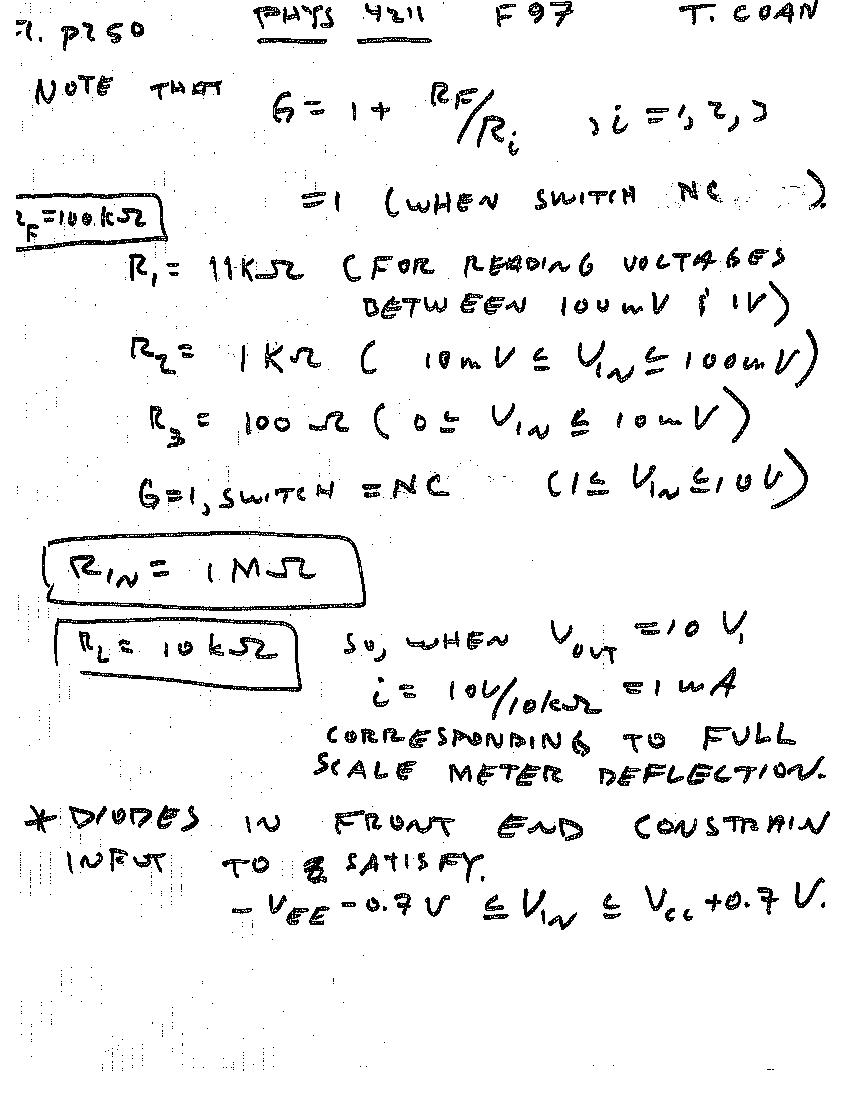 7. p250 PHYS 4211 F97 T. COAN
NOTE THAT G = 1 + RF/Ri , i = 1, 2, 3
=1 (WHEN SWITCH NC ).
RF=100kΩ
R1 = 11KΩ (FOR READING VOLTAGES
BETWEEN 100mV & 1V)
R2 = 1KΩ ( 10mV ≤ VIN ≤ 100mV)
R3 = 100 Ω ( 0 ≤ VIN ≤ 10mV)
G=1, SWITCH = NC (1 ≤ VIN ≤ 10V)
RIN = 1MΩ
RL = 10kΩ SO, WHEN VOUT = 10 V,
i = 10V/10kΩ = 1mA
CORRESPONDING TO FULL
SCALE METER DEFLECTION.
* DIODES IN FRONT END CONSTRAIN
INPUT TO SATISFY.
-VEE-0.7V ≤ VIN ≤ Vcc+0.7V.